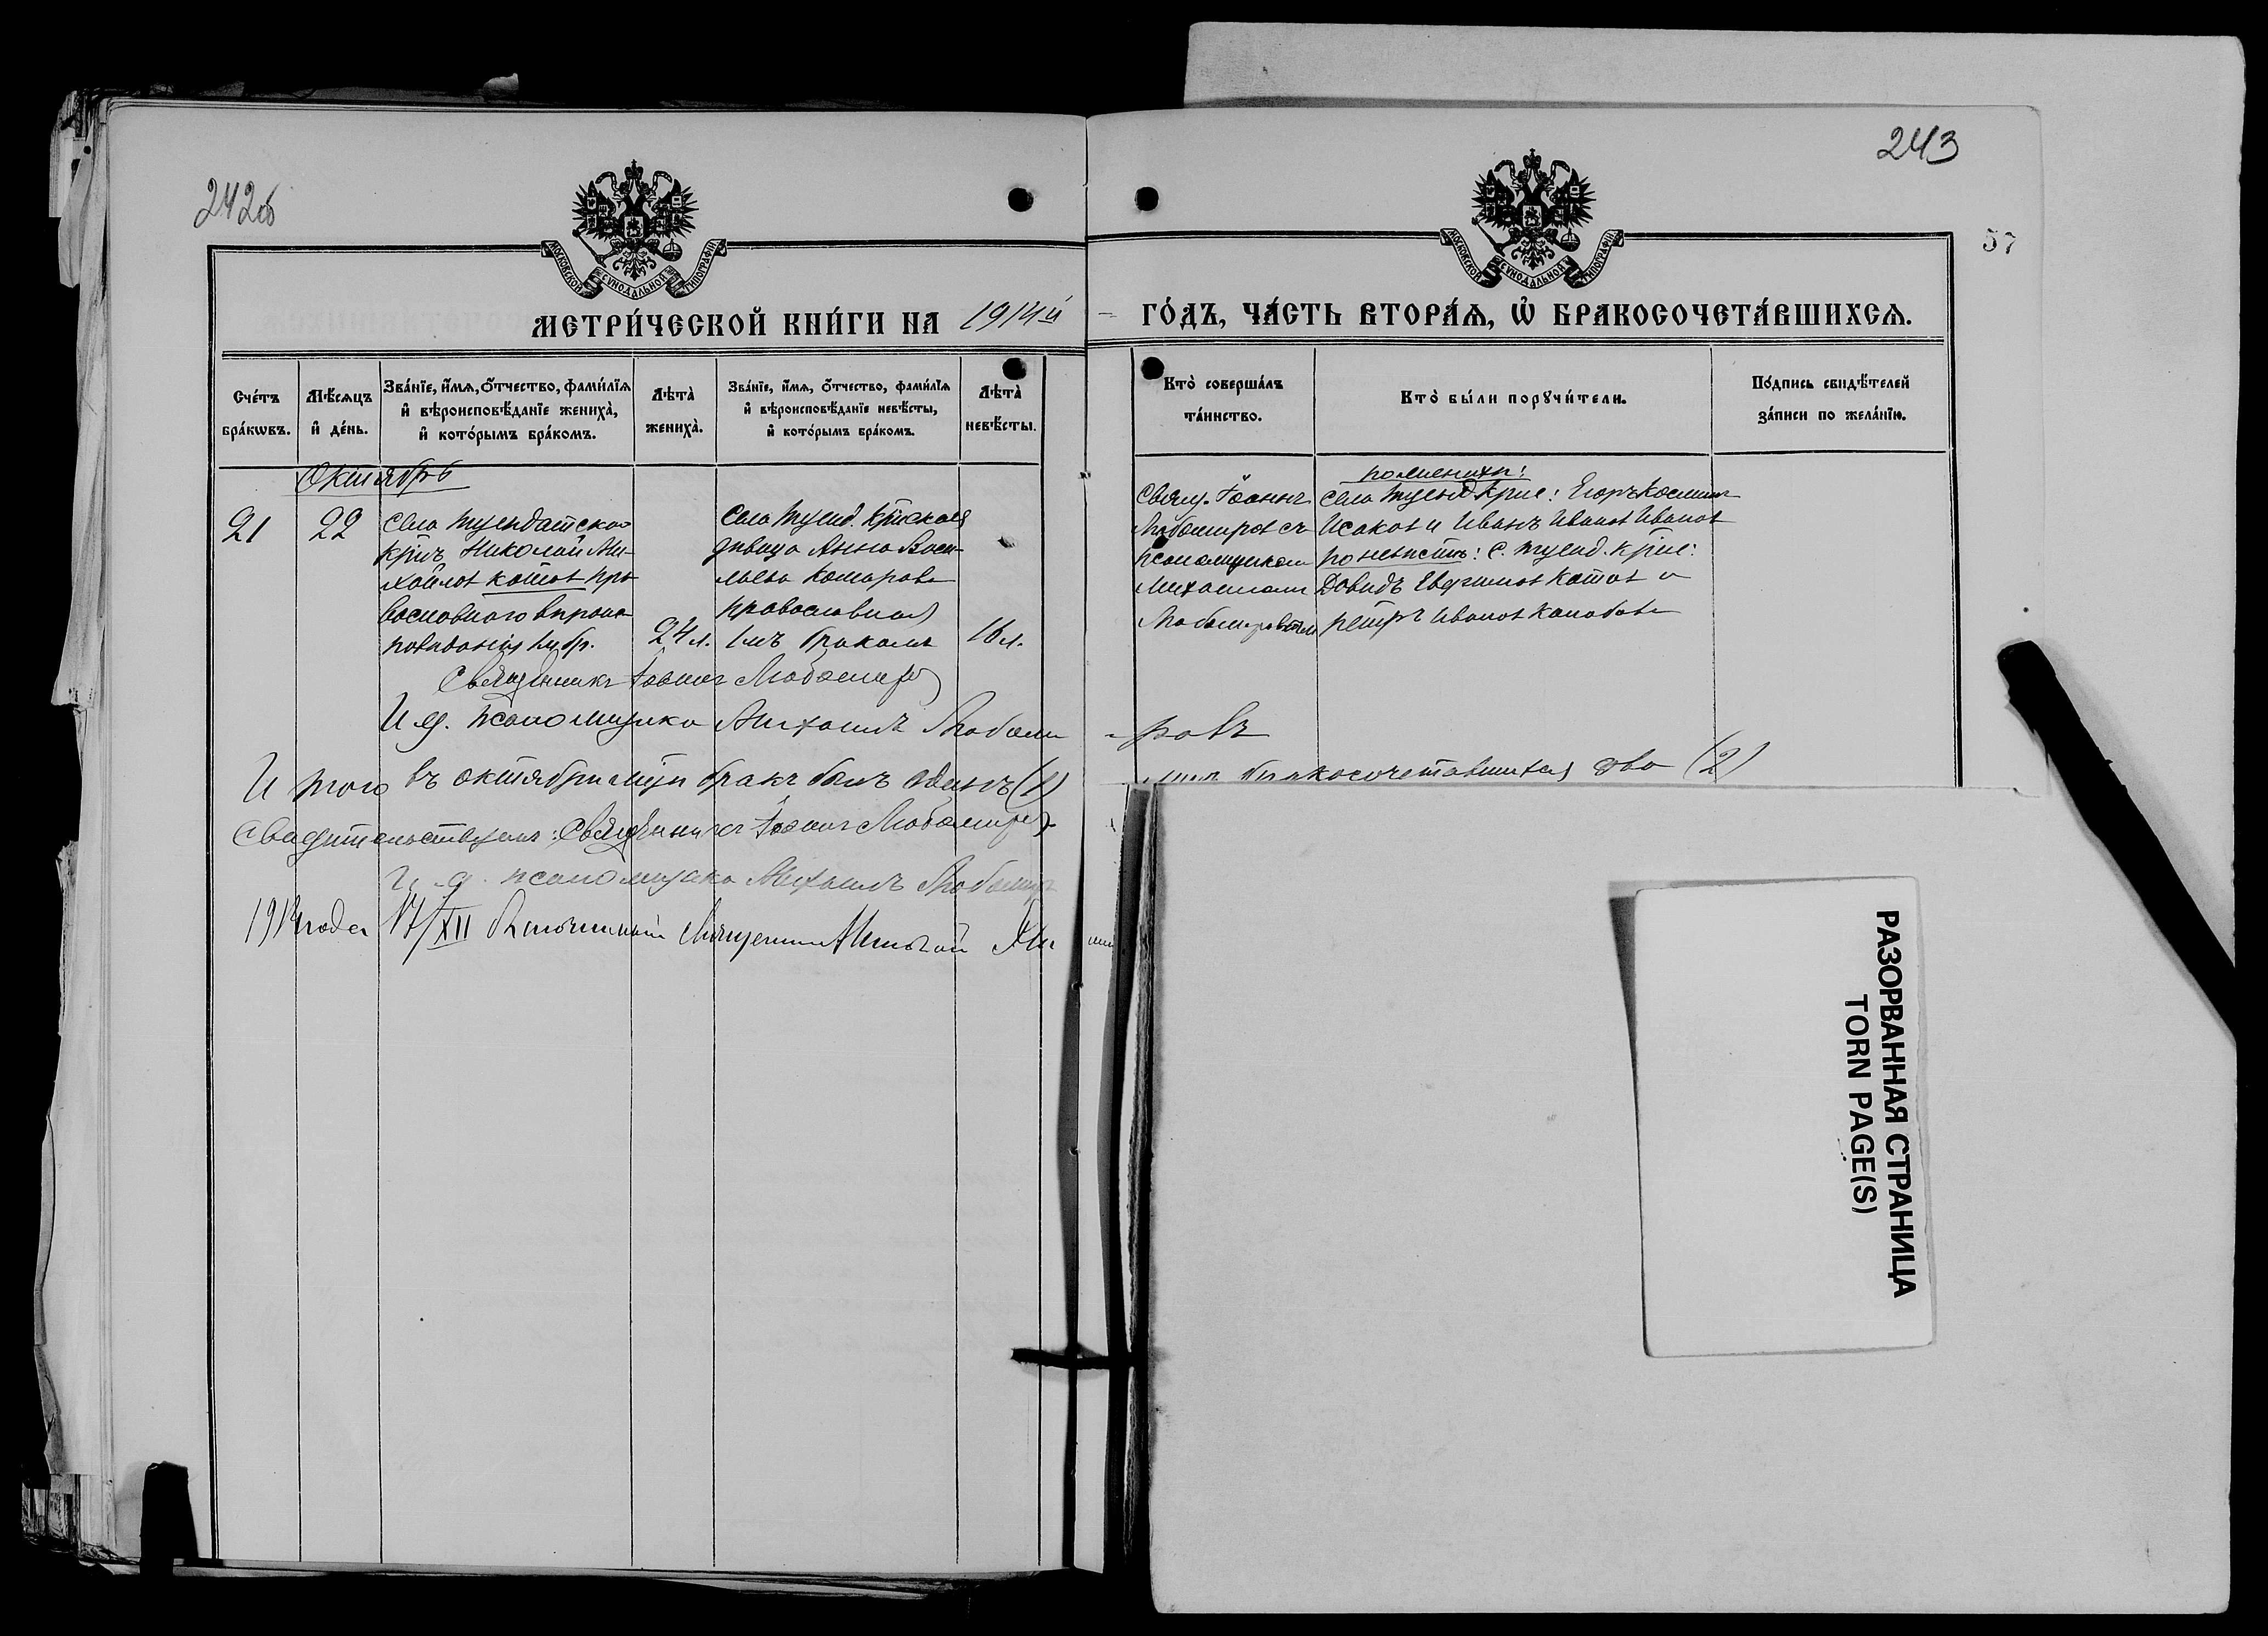 242об
243
57
МОСКОВСКОЙ СѴНОДАЛЬНОЙ ТИПОГРАФІИ
МОСКОВСКОЙ СѴНОДАЛЬНОЙ ТИПОГРАФІИ
МЕТРИ́ЧЕСКОЙ КНИ́ГИ НА 1914й ГО́ДЪ, ЧА́СТЬ ВТОРА́Ѧ, Ѽ БРАКОСОЧЕТА́ВШИХСѦ.
Сче́тъ бра́кѡвъ.
Мѣ́сѧцъ и҆ де́нь.
Зва́нїе, и҆́мѧ, ѻ҆́тчество, фами́лїѧ и҆ вѣроисповѣ́данїе жениха̀, и҆ кото́рымъ бра́комъ.
Лѣта̀ жениха̀.
Зва́нїе, и҆́мѧ, ѻ҆́тчество, фами́лїѧ и҆ вѣроисповѣ́данїе невѣ́сты, и҆ кото́рымъ бра́комъ.
Лѣта̀ невѣ́сты.
Кто̀ соверша́лъ та́инство.
Кто̀ бы́ли порꙋчи́тели.
По́дпись свидѣ́телей за́писи по жела́нїю.
Октябрь
21
22
Села Тусидатскаго
кр-нъ Николай Ми-
хайловъ Котовъ пра-
вославнаго вѣроис-
повѣданія 1мъ бр.
24 л.
Села Тусид. кр-нская
дѣвица Анна Васи-
льева Комарова
православная
1мъ бракомъ
16 л.
Свящ. Іоаннъ
Любомировъ съ
псаломщикомъ
Михаиломъ
Любомировымъ
по женихѣ:
села Тусид. кр-не: Егоръ Космин
Исаковъ и Иванъ Ивановъ Ивановъ
по невѣстѣ: с. Тусид. кр-не:
Давидъ Евфимовъ Котовъ и
Петръ Ивановъ
Священникъ Іоаннъ Любомировъ
И. д. псаломщика Михаилъ Любоми-ровъ
Итого въ октябрѣ м-цѣ бракъ былъ одинъ (1)
бракосочетавшихся два (2)
Свидѣтельствуемъ: Священникъ Іоаннъ Любомировъ
И. д. псаломщика Михаилъ Любомир
1914 года /XII Священникъ
РАЗОРВАННАЯ СТРАНИЦА
TORN PAGE(S)